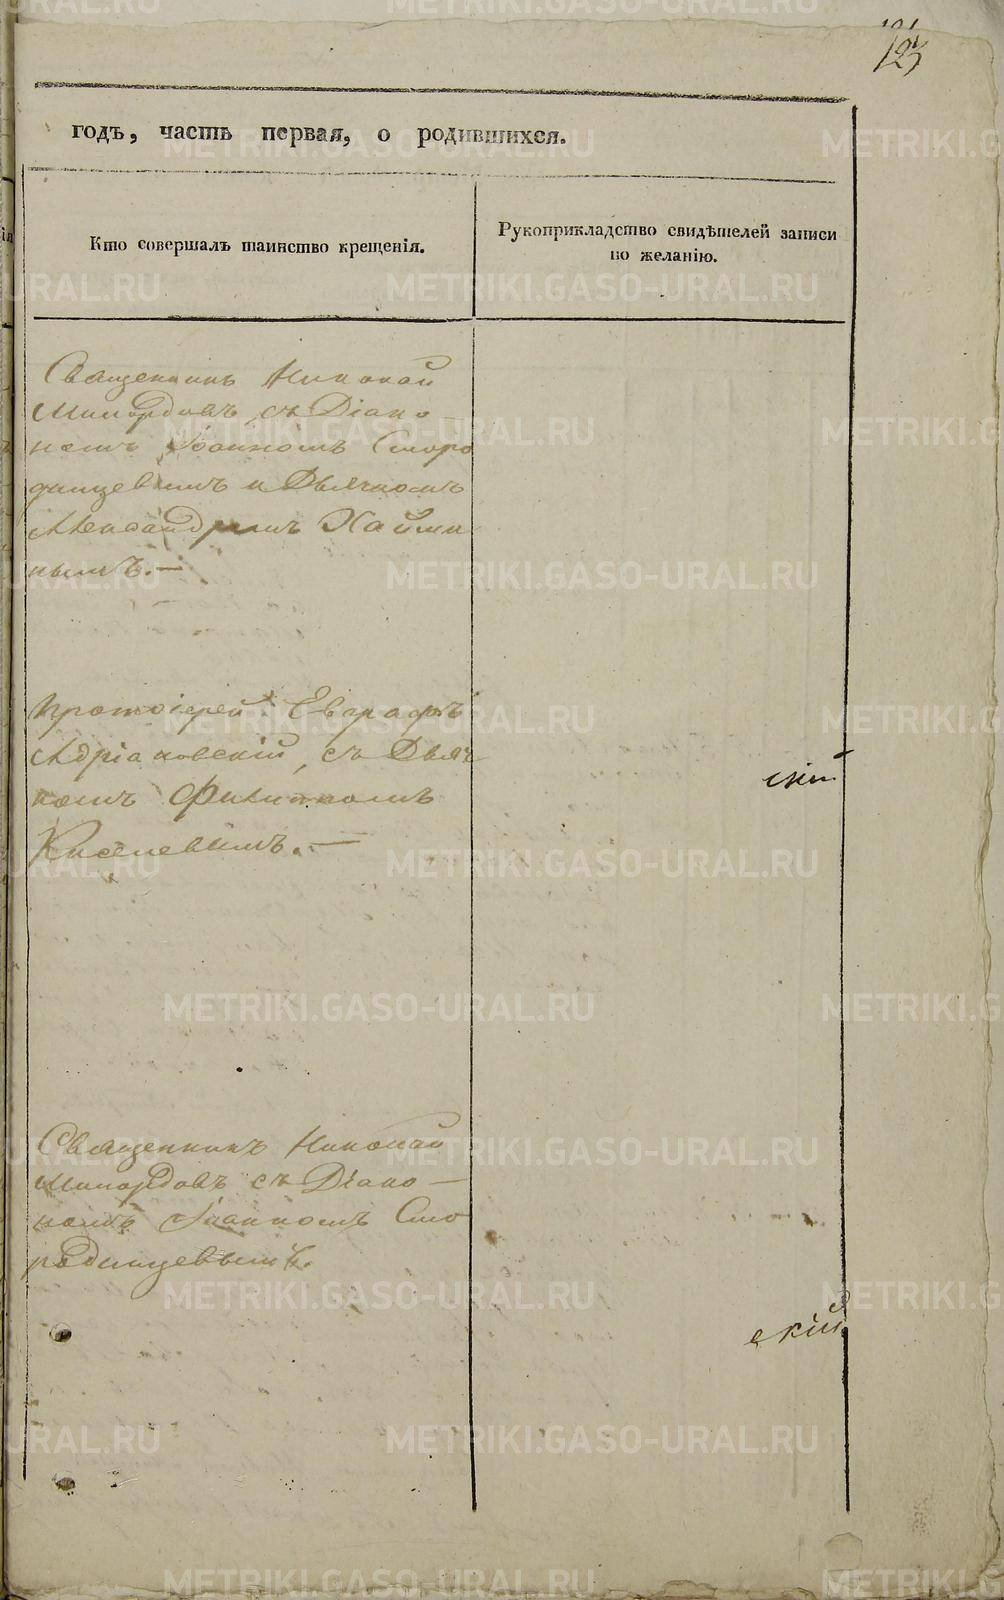 123
годъ, часть первая, о родившихся.
Кто совершалъ таинство крещенія.
Рукоприкладство свидѣтелей записи
по желанію.
Священникъ Николай
съ Діако-
номъ Іоанномъ Сморо
динцевымъ и Дьячкомъ
Александромъ
нымъ.—
Протоіерей Евграфъ
Адріановскій, съ Дьяч
комъ Филиппомъ
Киселевымъ.—
скій
Священникъ Николай
съ Діако—
номъ Іоанномъ Смо
родинцевымъ.
скій
METRIKI.GASO-URAL.RU